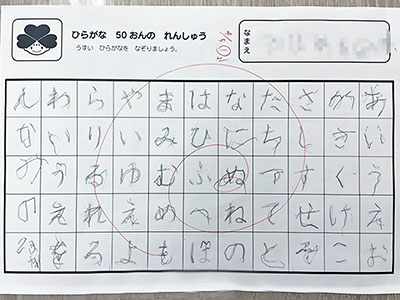 ひらがな 50おんの れんしゅう
うすい ひらがなを なぞりましょう。
なまえ
ん わ ら や ま は な た さ か あ
い り い み ひ に ち し き い
う る ゆ む ふ ぬ す く う
え れ え め へ ね て せ け え
を ろ よ も ほ の と そ こ お